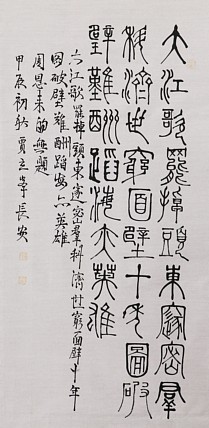 大江歌罷掉頭東邃密羣
科濟世窮面壁十年圖破
壁難酬蹈海亦英雄
大江歌罷掉頭東邃密羣科濟世窮面壁十年
圖破壁難酬蹈海亦英雄
周恩来的無題
甲辰初秋賈立 長安